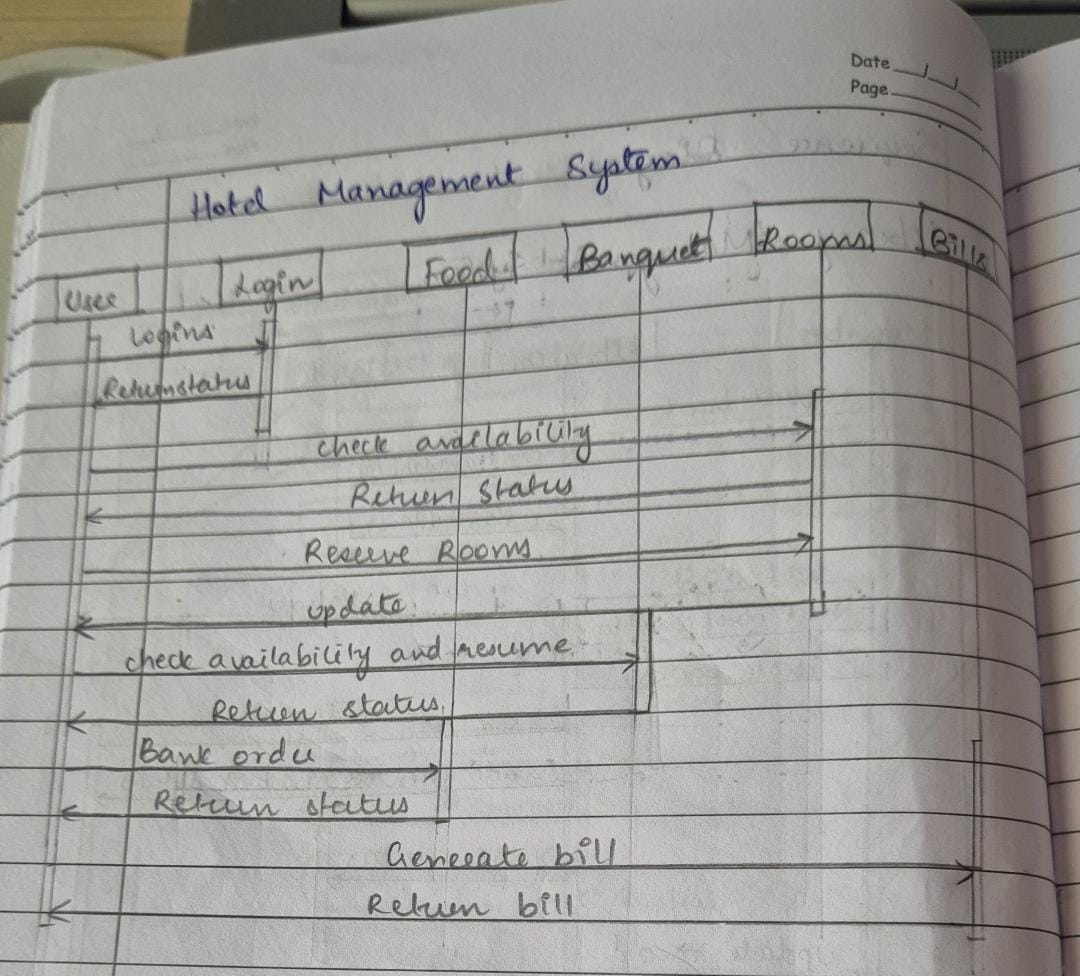 Date
Page
Hotel Management System
User Login Food Banquet Rooms Bills
Logins
Return status
check availability
Return status
Reserve Rooms
update
check availability and resume
Return status
Bank order
Return status
Generate bill
Return bill